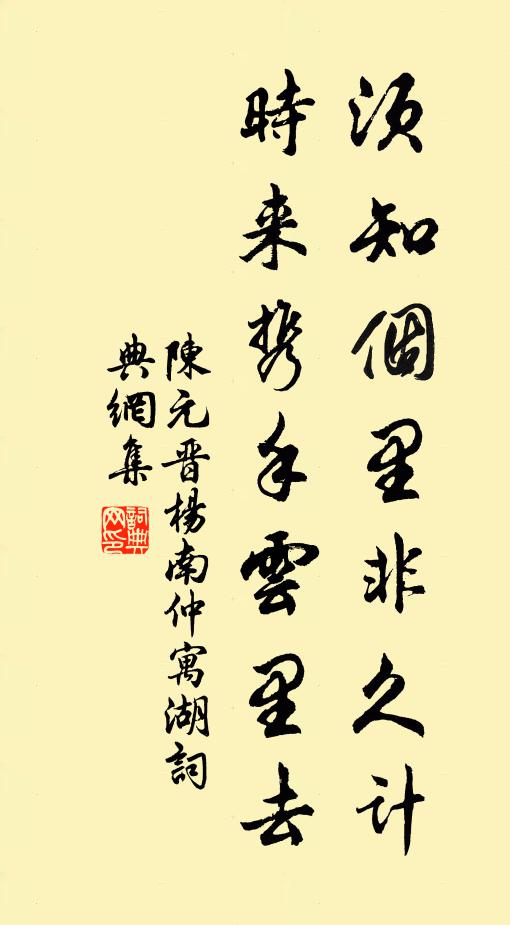 須知個里非久計
時来携手雲里去
陳元晋楊南仲寓湖詞
典網集
詞典網印